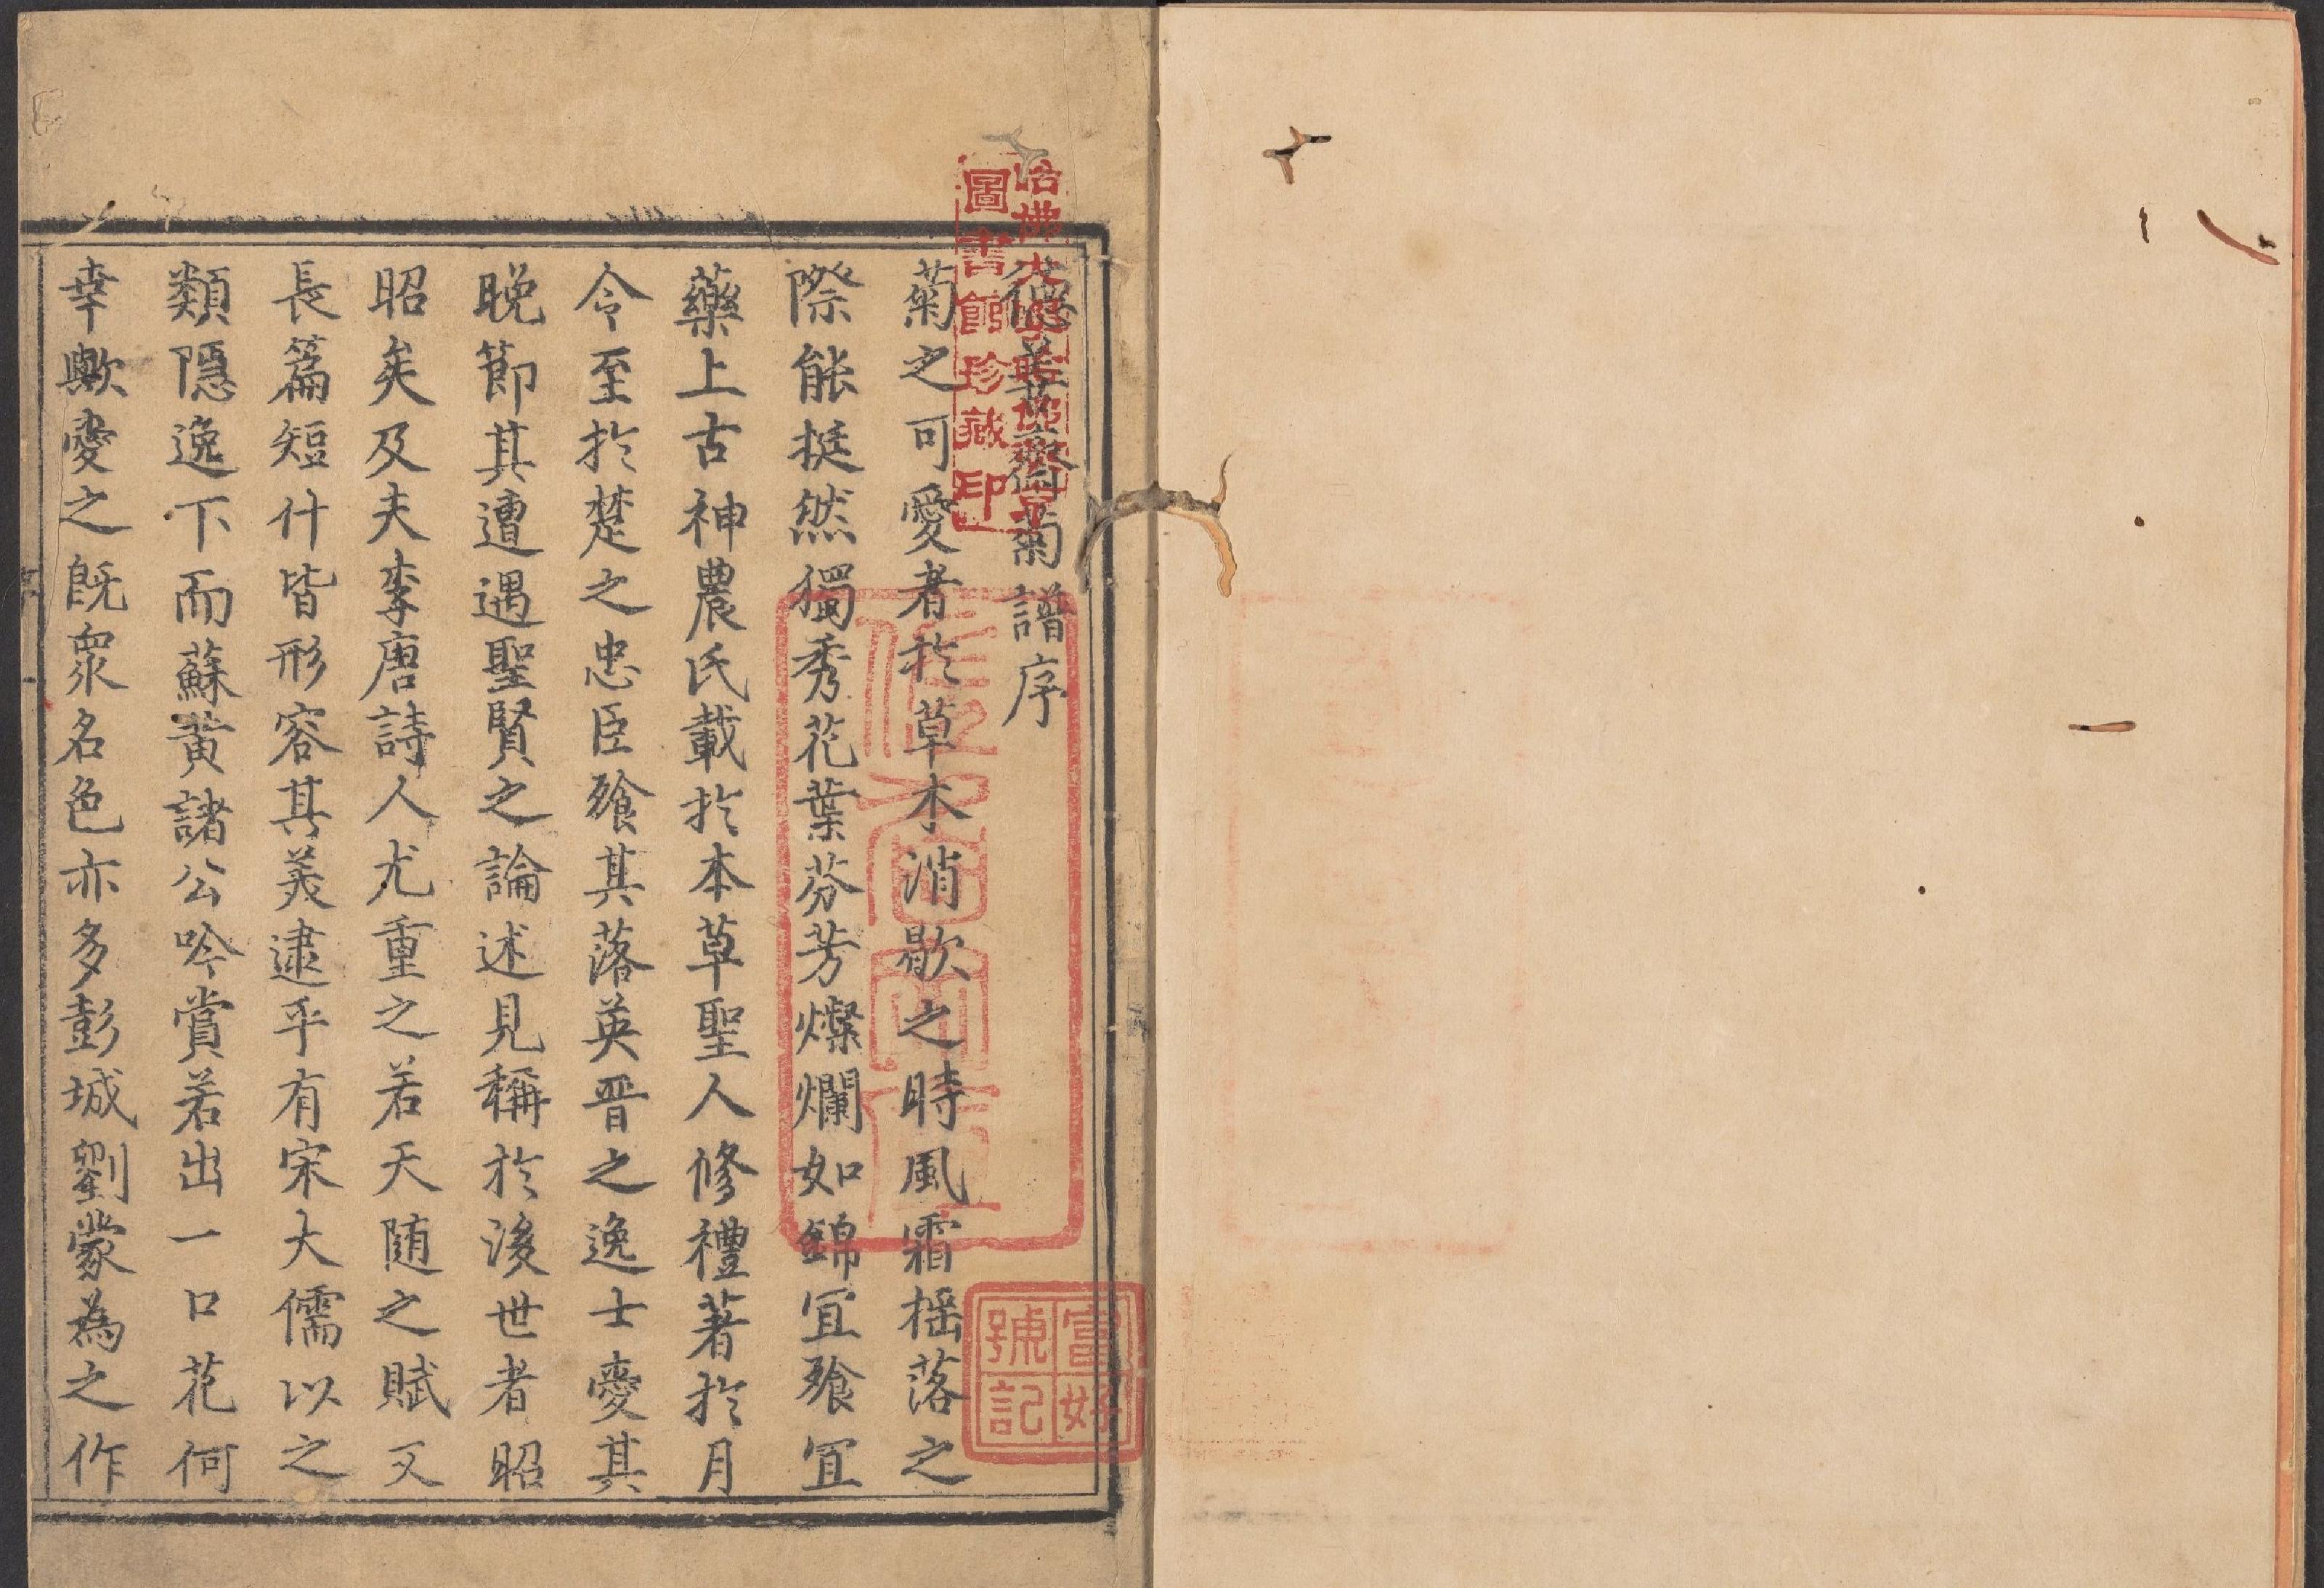 德善齋菊譜序
菊之可愛者扵草木消歇之時風霜揺落之
際能挺然獨秀花葉芬芳燦爛如錦冝飱冝
藥上古神農氏載扵本草聖人修禮著扵月
令至扵楚之忠臣飱其落英晋之逸士愛其
晚節其遭遇聖賢之論述見稱扵後世者昭
昭矣及夫李唐詩人尤重之若天随之賦又
長篇短什皆形容其美逮乎有宋大儒以之
類隠逸下而蘇黄諸公吟賞若出一口花何
幸歟愛之既衆名色亦多彭城劉蒙為之作
哈佛大學哈佛燕京
圖書館珍藏印
當好
號記